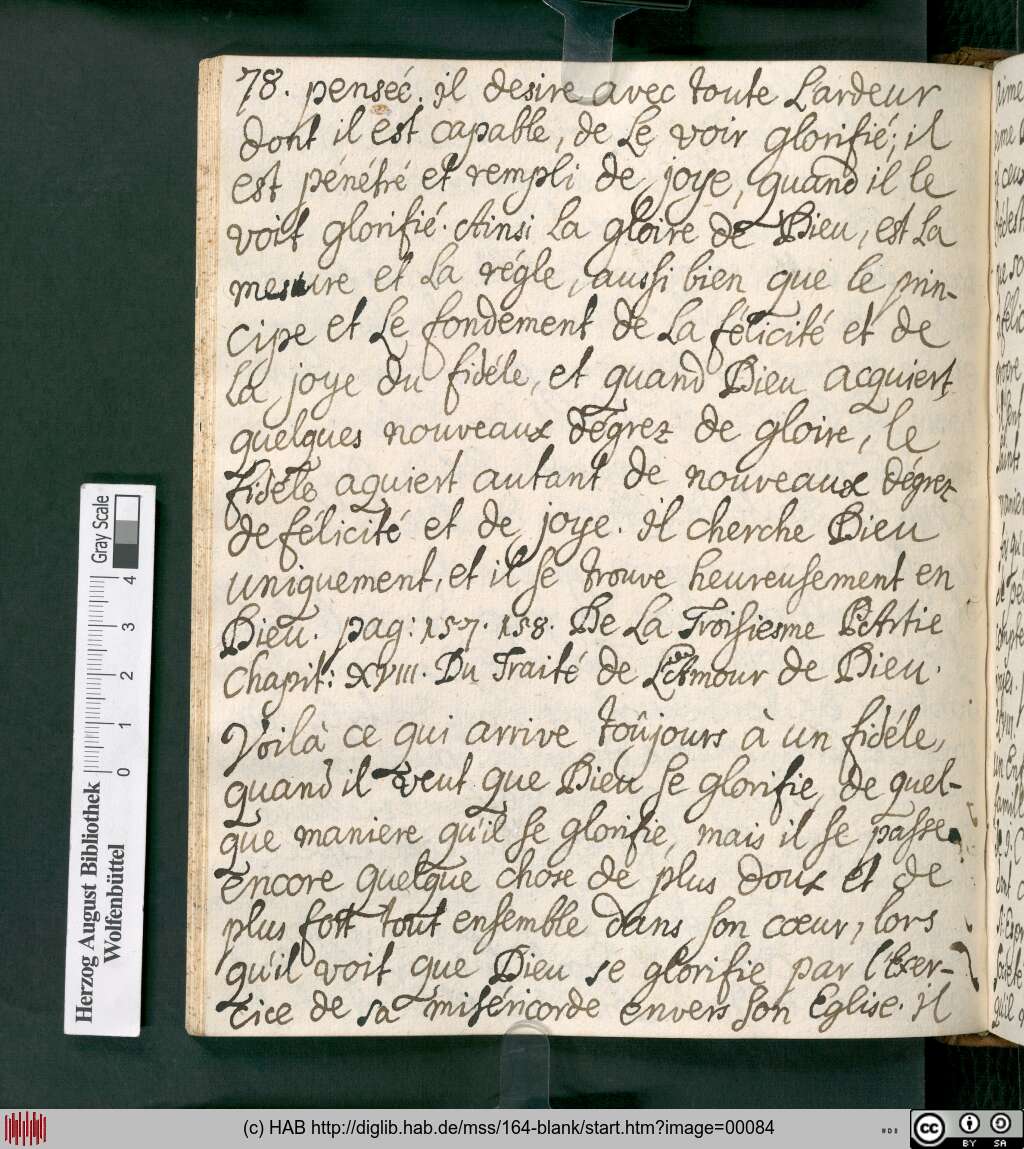 78. penseé. il desire avec toute L'ardeur
dont il est capable, de Le voir glorifié; il
est pénétré et rempli de joye, quand il le
voit glorifié. Ainsi La gloire de Dieu, est La
mesure et La régle, aussi bien que le prin-
cipe et Le fondement de La félicité et de
La joye du fidéle, et quand Dieu acquiert
quelques nouveaux dégrez de gloire, le
fidéle aquiert autant de nouveaux dégrez
de félicité et de joye. Il cherche Dieu
uniquement, et il se trouve heureusement en
Dieu. pag: 157. 158. De La Troisiesme PArtie
Chapit: XVIII. Du Traité de L'Amour de Dieu.
Voilà ce qui arrive toûjours à un fidéle,
quand il veut que Dieu se glorifie, de quel-
que maniere qu'il se glorifie, mais il se passe
encore quelque chose de plus doux et de
plus fort tout ensemble dans son cœur, lors
qu'il voit que Dieu se glorifie par l'Exer-
cice de sa miséricorde envers son Eglise. Il
Herzog August Bibliothek
Wolfenbüttel
0 1 2 3 4
Gray Scale
(c) HAB http://diglib.hab.de/mss/164-blank/start.htm?image=00084
cc BY SA